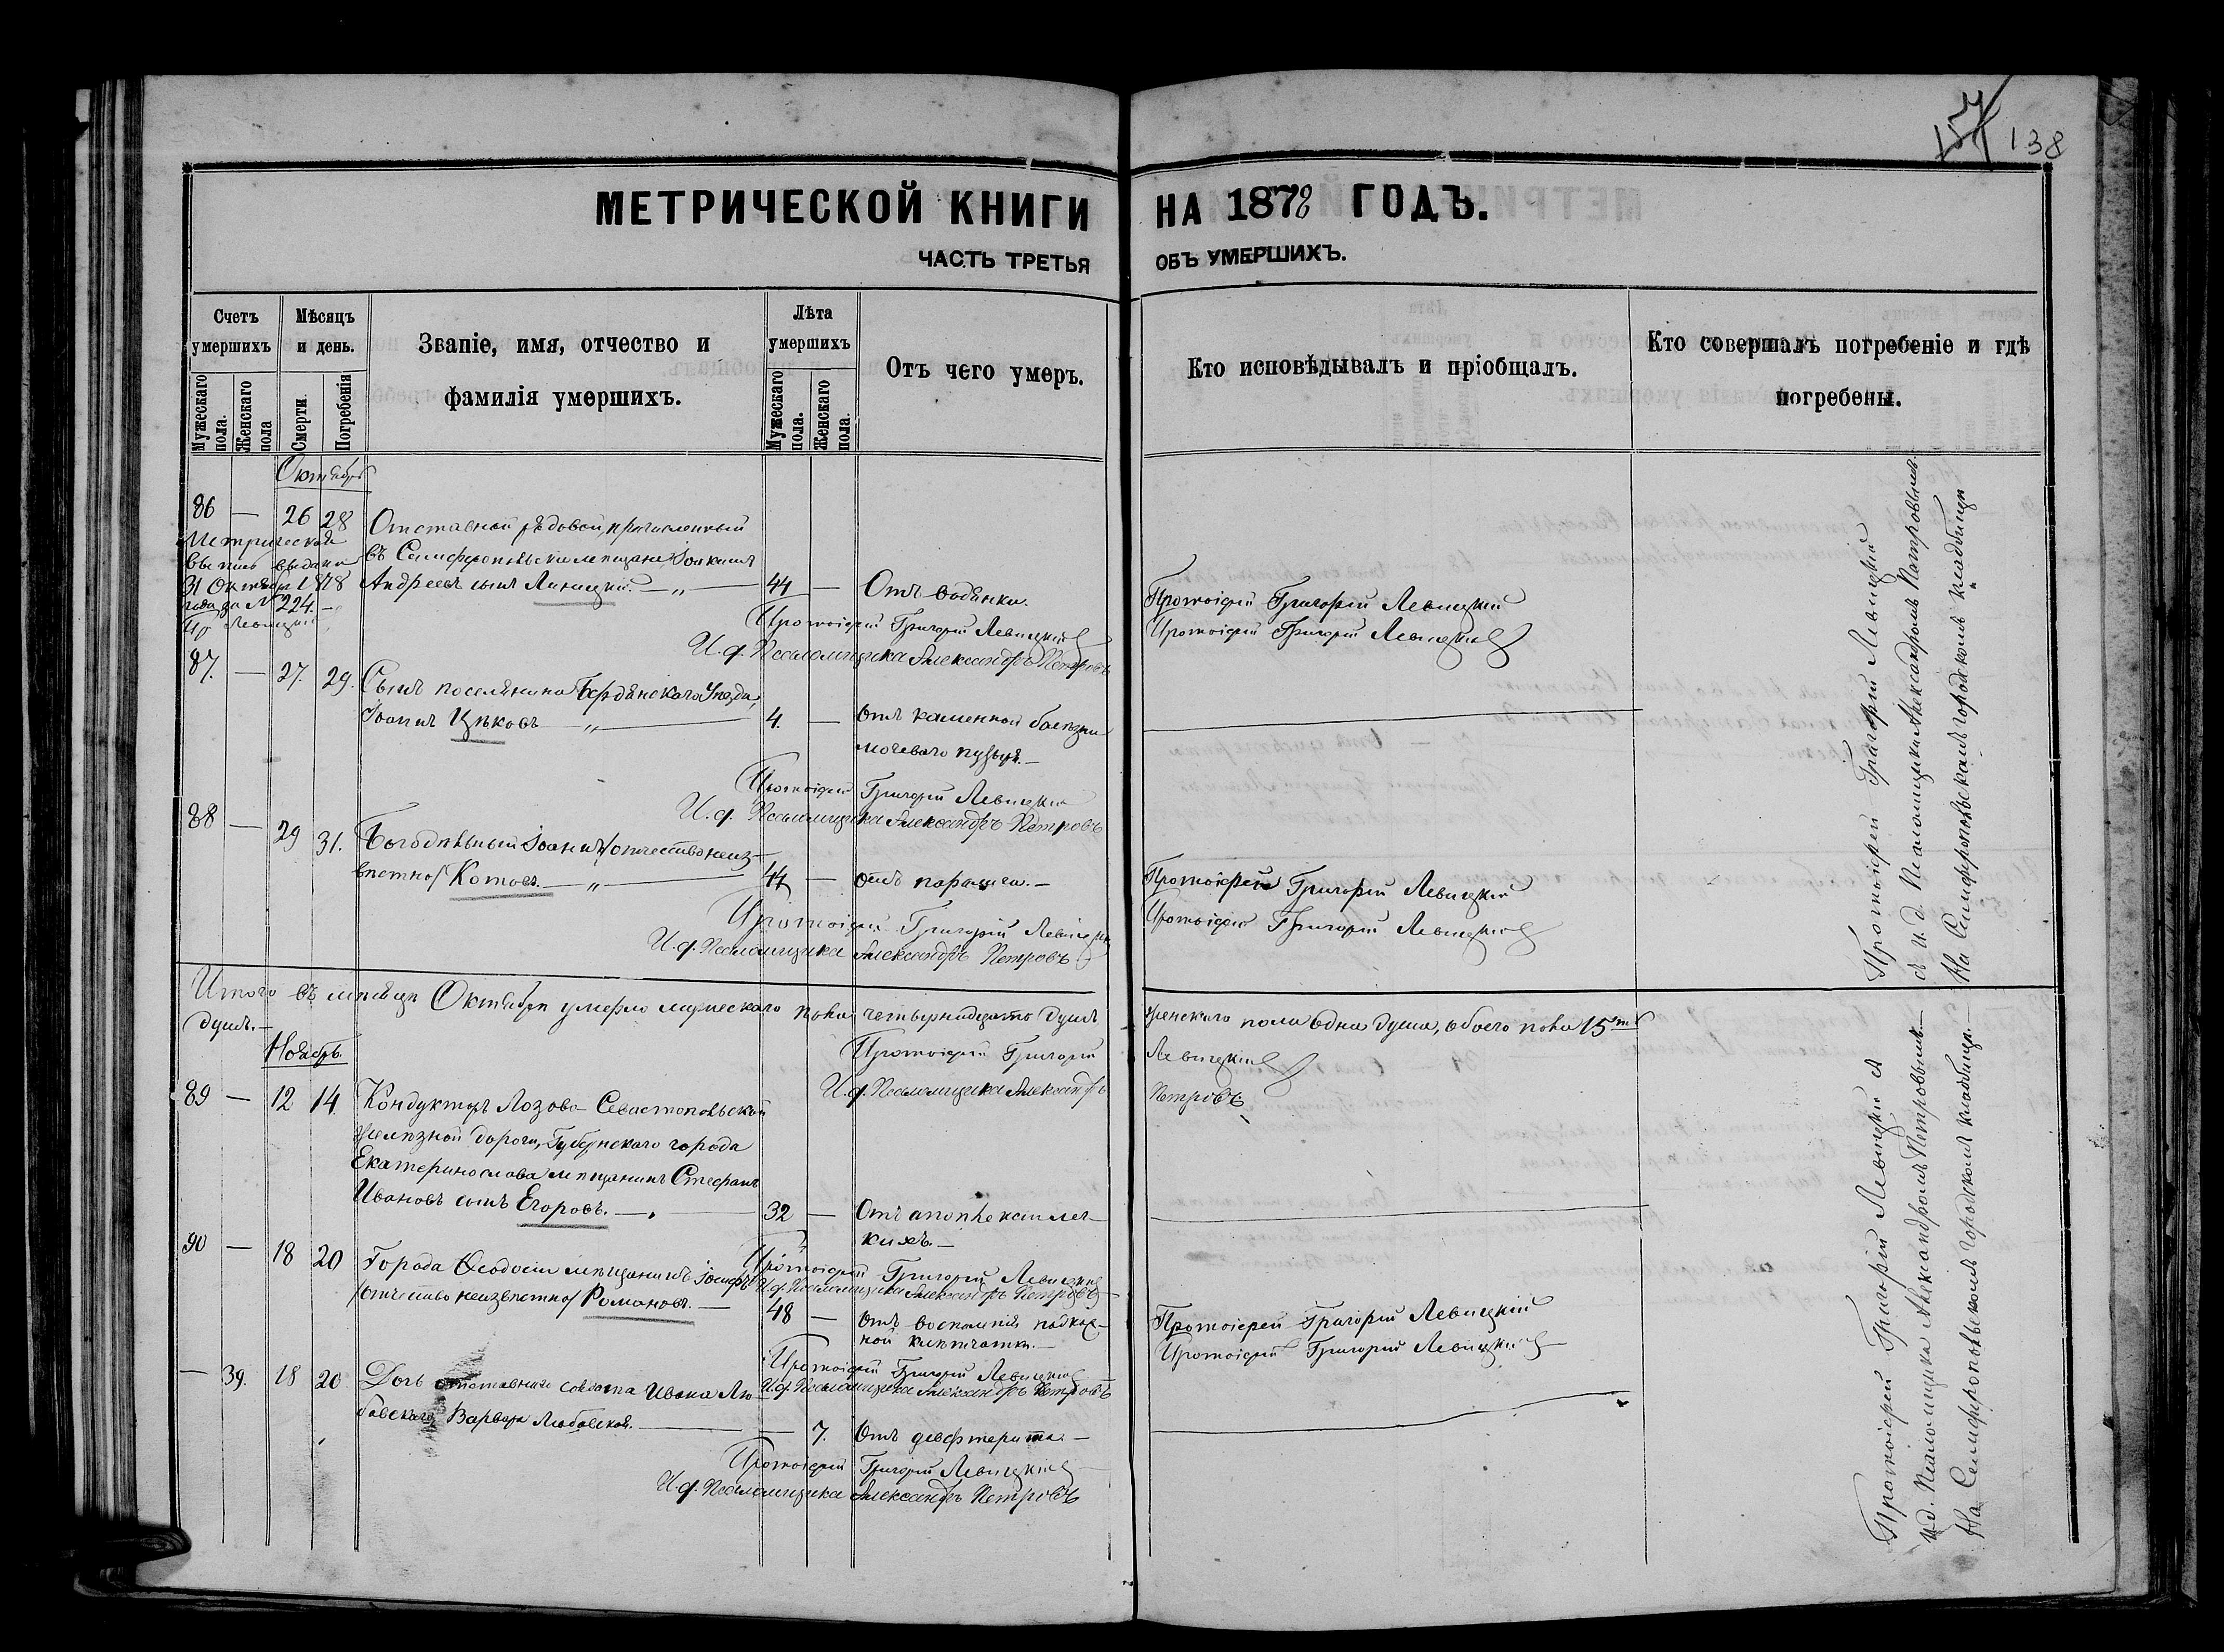 157 138
МЕТРИЧЕСКОЙ КНИГИ НА 1878 ГОДЪ.
ЧАСТЬ ТРЕТЬЯ ОБЪ УМЕРШИХЪ.
Счетъ умершихъ
Мужескаго пола.
Женскаго пола
Мѣсяцъ и день.
Смерти.
Погребенія
Званіе, имя, отчество и
фамилія умершихъ.
Лѣта умершихъ
Мужескаго пола.
Женскаго пола.
Отъ чего умеръ.
Кто исповѣдывалъ и пріобщалъ.
Кто совершалъ погребеніе и гдѣ
погребены.
Октябрь
86 — 26 28 Отставной рядовой, причисленный
въ Симферопольскіе мѣщане Іоакимъ
Андреевъ сынъ Линицкій. —„— 44 — Отъ водянки.
Метрическая
выпись выдана
31 Октября 1878
года за № 224. —
Пр Левицкій
Протоіерей Григорій Левицкій
И. д. Псаломщика Александръ Петровъ
Протоіерей Григорій Левицкій
Протоіерей Григорій Левицкій
87. — 27. 29. Сынъ поселянина Бердянскаго Уѣзда,
Іоаннъ Цѣковъ —„— 4. — Отъ каменной болѣзни
мочеваго пузыря. —
Протоіерей Григорій Левицкій
И. д. Псаломщика Александръ Петровъ
88 — 29 31. Богодѣльный Іоаннъ /отчество неиз-
вѣстно/ Котовъ. —„— 44 — отъ паралича. —
Протоіерей Григорій Левицкій
И. д. Псаломщика Александръ Петровъ
Протоіерей Григорій Левицкій
Протоіерей Григорій Левицкій
Протоіерей Григорій Левицкій
съ И. д. Псаломщика Александромъ Петровымъ.
На Симферопольскомъ городскомъ кладбищѣ
Итого въ мѣсяцѣ Октябрѣ умерло мужескаго пола четырнадцать душъ женскаго пола одна душа, обоего пола 15ть
душъ. —
Протоіерей Григорій Левицкій
И. д. Псаломщика Александръ Петровъ
Ноябрь.
89 — 12 14. Кондукторъ Лозово-Севастопольской
желѣзной дороги, Губернскаго города
Екатеринослава мѣщанинъ Стефанъ
Ивановъ сынъ Егоровъ. — 32 — Отъ апоплексіи лег-
кихъ. —
Протоіерей Григорій Левицкій
И. д. Псаломщика Александръ Петровъ
90 — 18 20 Города Ѳеодосіи мѣщанинъ Іосифъ
/отчество неизвѣстно/ Романовъ. — 48 — Отъ воспаленія подкож-
ной клѣтчатки. —
Протоіерей Григорій Левицкій
И. д. Псаломщика Александръ Петровъ
Протоіерей Григорій Левицкій
Протоіерей Григорій Левицкій
— 39. 18 20 Дочь отставнаго солдата Ивана Лю-
бовскаго Варвара Любовская. — 7. Отъ дифтерита. —
Протоіерей Григорій Левицкій
И. д. Псаломщика Александръ Петровъ
Протоіерей Григорій Левицкій съ
И. д. Псаломщика Александромъ Петровымъ. —
На Симферопольскомъ городскомъ кладбищѣ. —